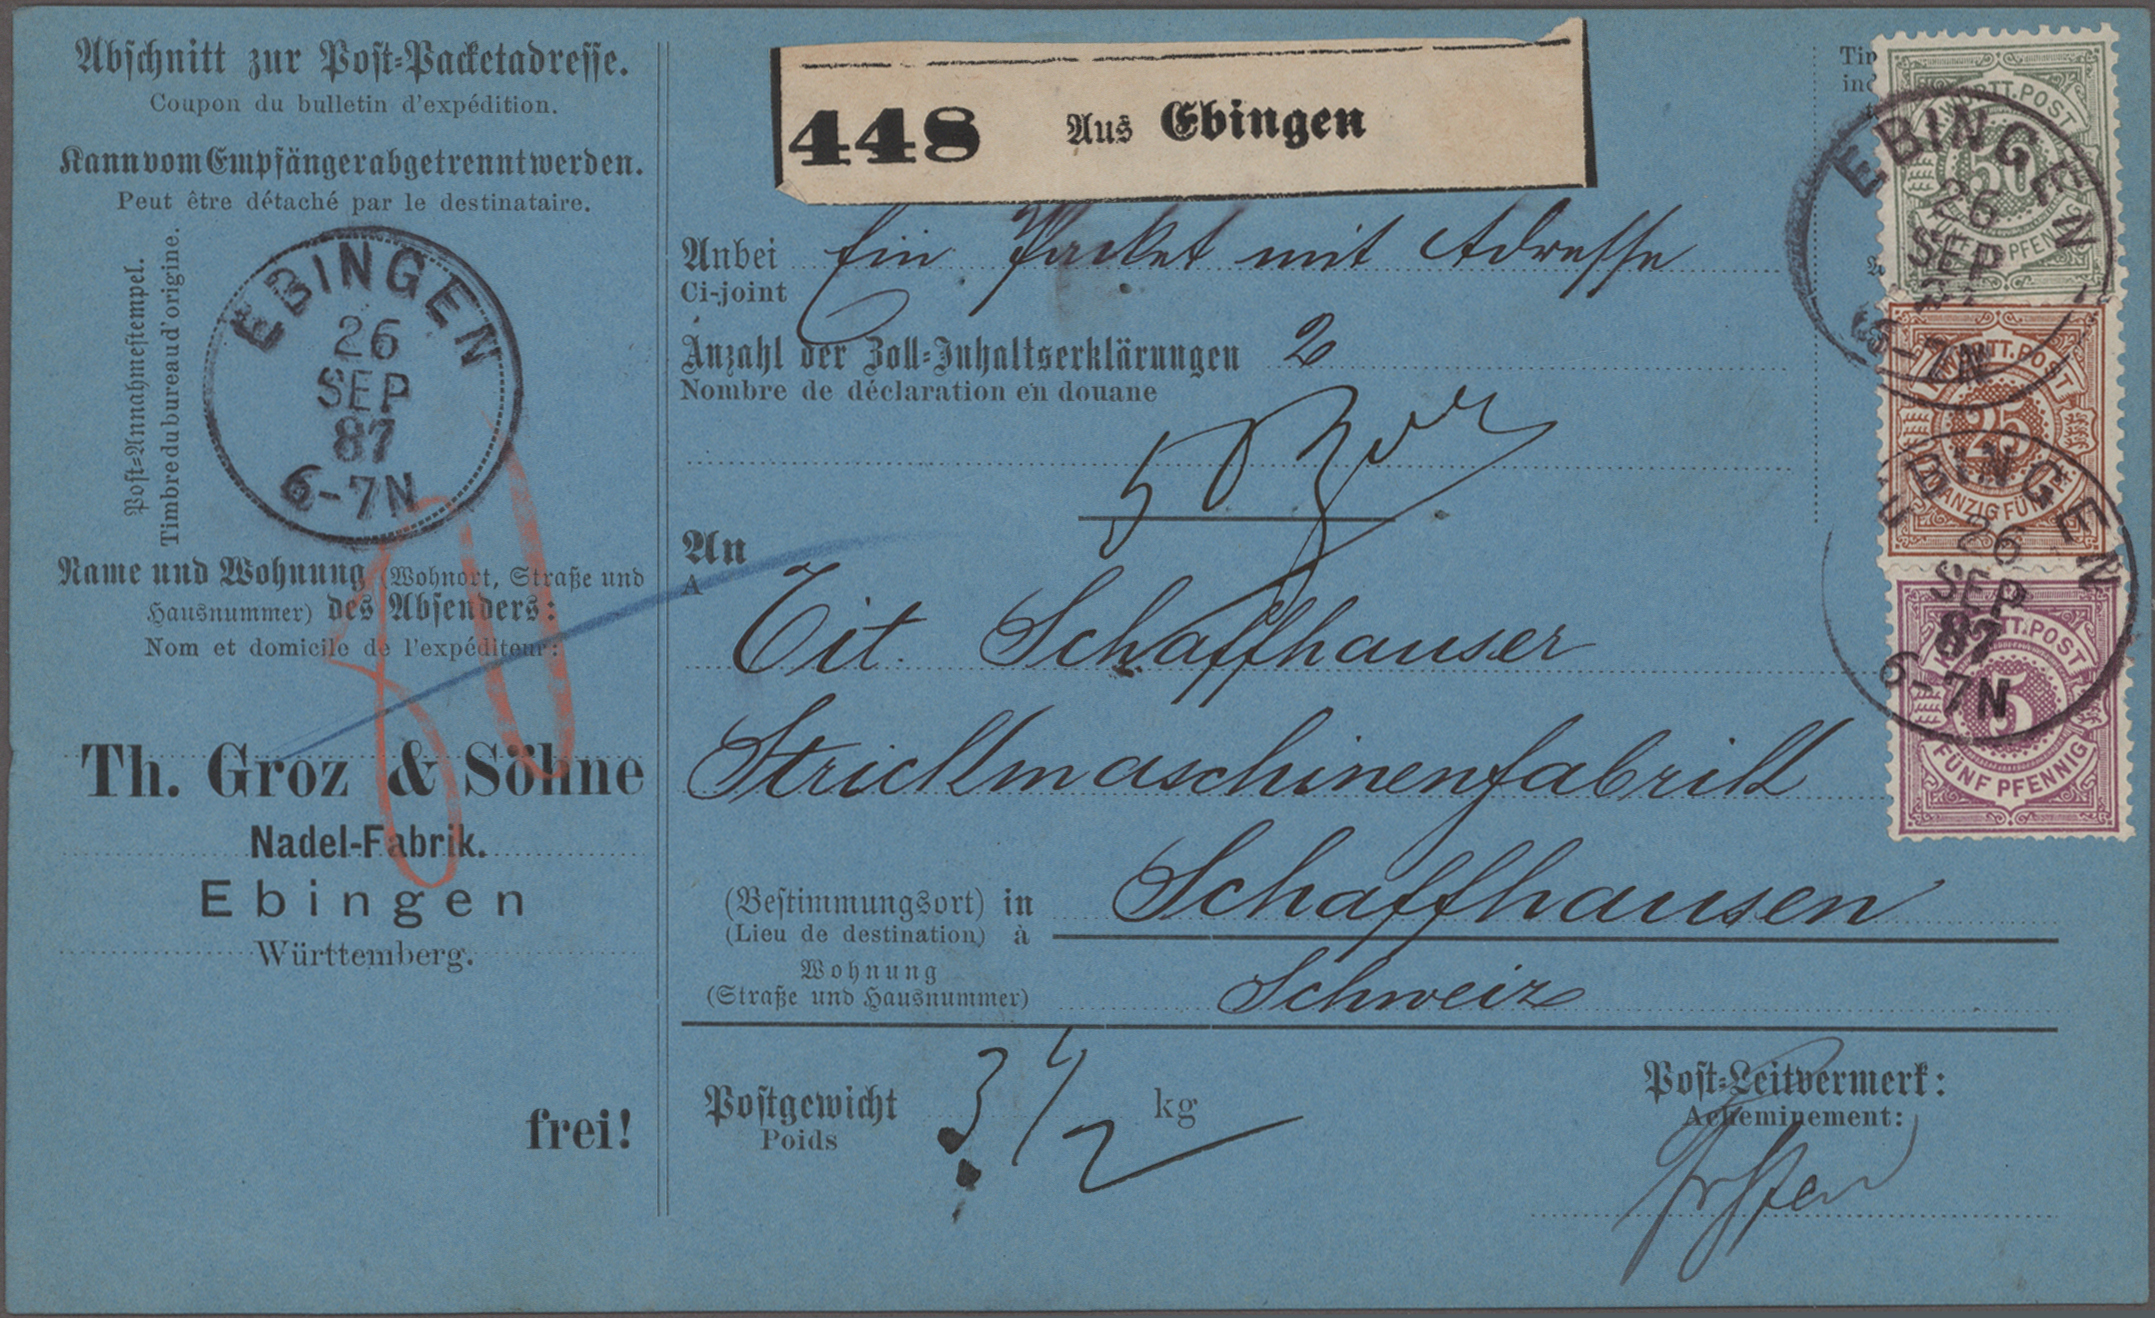 Abschnitt zur Post-Packetadresse.
Coupon du bulletin d'expédition.
Kann vom Empfänger abgetrennt werden.
Peut être détaché par le destinataire.
Post-Annahmestempel.
Timbre du bureau d'origine.
EBINGEN
26
SEP
87
6-7N
Name und Wohnung (Wohnort, Straße und
Hausnummer) des Absenders:
Nom et domicile de l'expéditeur:
Th. Groz & Söhne
Nadel-Fabrik.
Ebingen
Württemberg.
frei!
448 Aus Ebingen
Anbei Ein Packet mit Adresse
Ci-joint
Anzahl der Zoll-Inhaltserklärungen 2
Nombre de déclaration en douane
An
A
Tit. Schaffhauser
Strickmaschinenfabrik
(Bestimmungsort) in Schaffhausen
(Lieu de destination) à
Wohnung
(Straße und Hausnummer) Schweiz
Postgewicht 3 1/2 kg
Poids
Post-Leitvermerk:
Acheminement:
Tim
ind
K. WÜRTT. POST
50
FÜNFZIG PFENNIG
EBINGEN
26
SEP
87
6-7N
K. WÜRTT. POST
25
ZWANZIG FÜNF PF
EBINGEN
26
SEP
87
6-7N
K. WÜRTT. POST
5
FÜNF PFENNIG